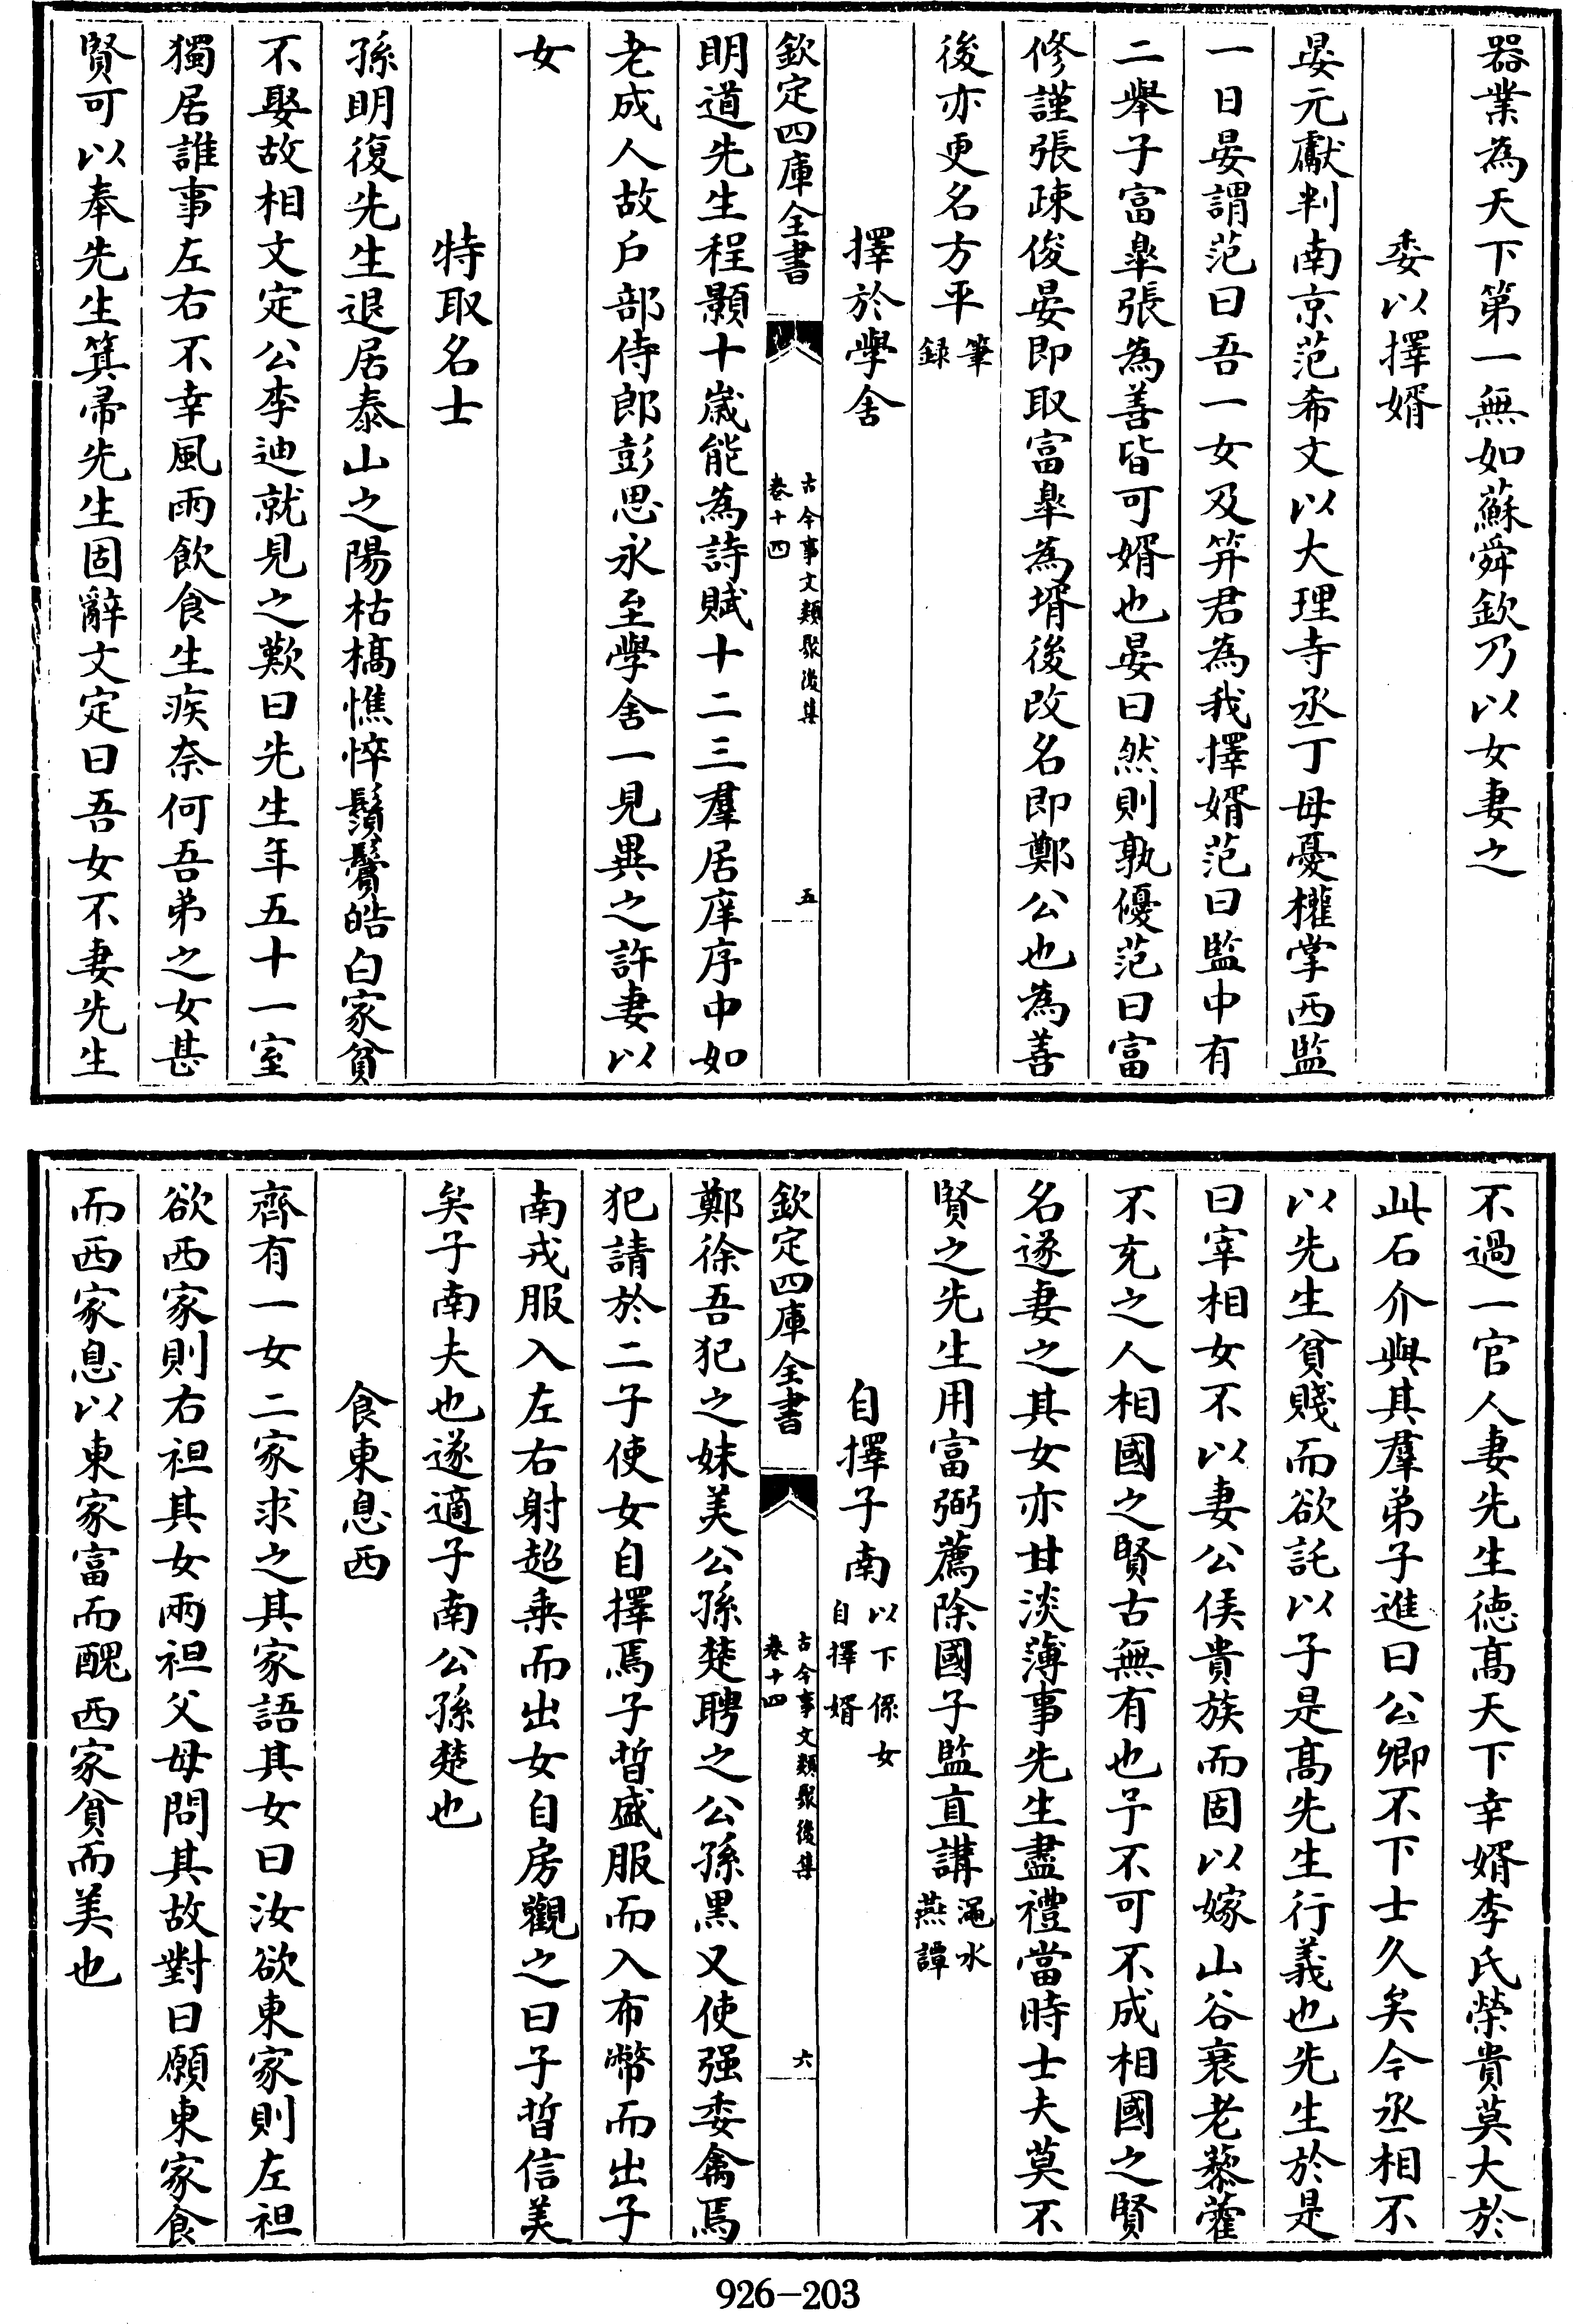 器業為天下第一無如蘇舜欽乃以女妻之
委以擇婿
晏元獻判南京范希文以大理寺丞丁母憂權掌西監
一日晏謂范曰吾一女及笄君為我擇婿范曰監中有
二舉子富臯張為善皆可婿也晏曰然則孰優范曰富
修謹張疎俊晏即取富臯為壻後改名即鄭公也為善
後亦更名方平筆錄
擇於學舍
欽定四庫全書
古今事文類聚後集
卷十四
五
明道先生程顥十歲能為詩賦十二三羣居庠序中如
老成人故户部侍郎彭思永至學舍一見異之許妻以
女
特取名士
孫明復先生退居泰山之陽枯槁憔悴鬚鬢皓白家貧
不娶故相文定公李迪就見之歎曰先生年五十一室
獨居誰事左右不幸風雨飲食生疾奈何吾弟之女甚
賢可以奉先生箕帚先生固辭文定曰吾女不妻先生
不過一官人妻先生徳髙天下幸婿李氏榮貴莫大於
此石介與其羣弟子進曰公卿不下士久矣今丞相不
以先生貧賤而欲託以子是髙先生行義也先生於是
曰宰相女不以妻公侯貴族而固以嫁山谷衰老藜藿
不充之人相國之賢古無有也予不可不成相國之賢
名遂妻之其女亦甘淡薄事先生盡禮當時士夫莫不
賢之先生用富弼薦除國子監直講澠水燕譚
自擇子南以下係女自擇婿
欽定四庫全書
古今事文類聚後集
卷十四
六
鄭徐吾犯之妹美公孫楚聘之公孫黒又使强委禽焉
犯請於二子使女自擇焉子晳盛服而入布幣而出子
南戎服入左右射超乗而出女自房觀之曰子晳信美
矣子南夫也遂適子南公孫楚也
食東息西
齊有一女二家求之其家語其女曰汝欲東家則左袒
欲西家則右袒其女兩袒父母問其故對曰願東家食
而西家息以東家富而醜西家貧而美也
926-203